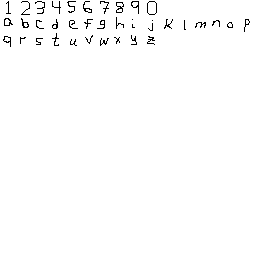 1 2 3 4 5 6 7 8 9 0
a b c d e f g h i j k l m n o p
q r s t u v w x y z